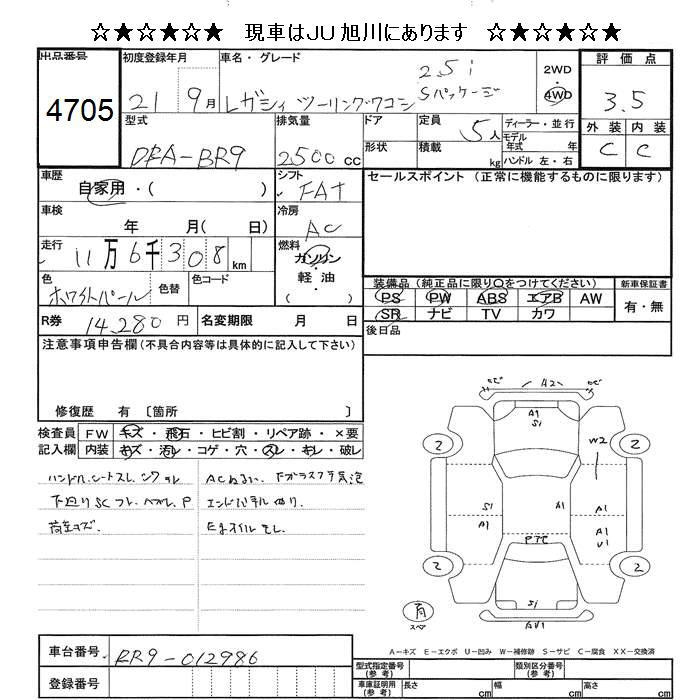 ☆★☆★☆★ 現車はJU旭川にあります ☆★☆★☆★
出品番号
4705
初度登録年月
21 9月
車名・グレード
レガシィ ツーリングワゴン
2.5i
Sパッケージ
2WD
4WD
評価点
3.5
外装 内装
C C
型式
DBA-BR9
排気量
2500cc
ドア
形状
定員
5人
積載
kg
ディーラー・並行
モデル年式 年
ハンドル 左・右
車歴
自家用・( )
シフト
FAT
セールスポイント (正常に機能するものに限ります)
車検
年 月( 日)
冷房
AC
走行
11万6千308km
燃料
ガソリン
・
軽油
( )
色
ホワイトパール
色替
色コード
装備品(純正品に限り○をつけてください)
新車保証書
PS PW ABS エアB AW
有・無
SR ナビ TV カワ
R券
14,280円
名変期限 月 日
後日品
注意事項申告欄(不具合内容等は具体的に記入して下さい)
修復歴 有 〔箇所 〕
検査員
記入欄
FW キズ・飛石・ヒビ割・リペア跡・×要
内装 キズ・汚レ・コゲ・穴・スレ・キレ・破レ
ハンドル、シートスレ、
ACぬるい、Fガラスフチ気泡
下廻りSC
P
エンドパネル
荷室キズ、
Eオイルモレ、
A2
A1
S1
2
2
W2
S1
A1
A1
A1
A1
U1
2
2
S1
AU1
有
スペア
A−キズ E−エクボ U−凹み W−補修跡 S−サビ C−腐食 XX−交換済
車台番号
BR9-012986
登録番号
型式指定番号
(参考)
類別区分番号
(参考)
車庫証明用
(参考)
長さ cm 幅 cm 高さ cm